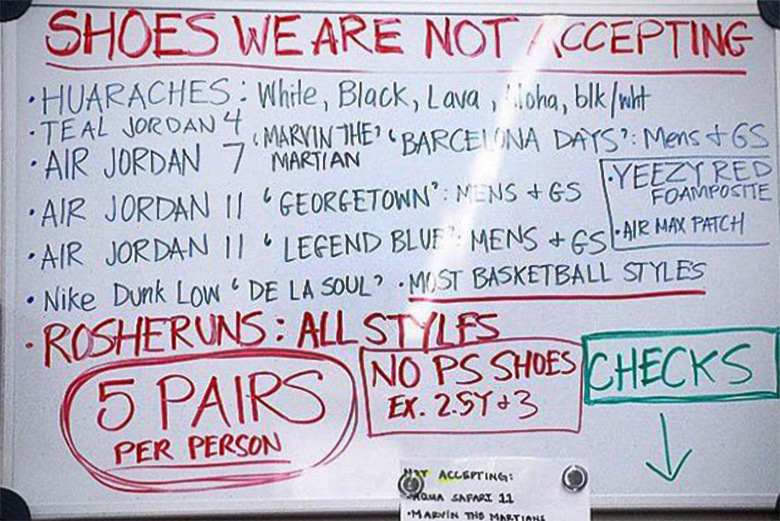 SHOES WE ARE NOT ACCEPTING
• HUARACHES: White, Black, Lava, Aloha, blk/wht
• TEAL JORDAN 4
• AIR JORDAN 7 'MARVIN THE MARTIAN' 'BARCELONA DAYS': Mens + GS
• AIR JORDAN 11 'GEORGETOWN': MENS + GS
• AIR JORDAN 11 'LEGEND BLUE': MENS + GS
• YEEZY RED
FOAMPOSITE
• AIR MAX PATCH
• Nike Dunk Low 'DE LA SOUL' • MOST BASKETBALL STYLES
• ROSHERUNS: ALL STYLES
5 PAIRS
PER PERSON
NO PS SHOES
EX. 2.5Y + 3
CHECKS
NOT ACCEPTING:
• AQUA SAFARI 11
• MARVIN THE MARTIANS